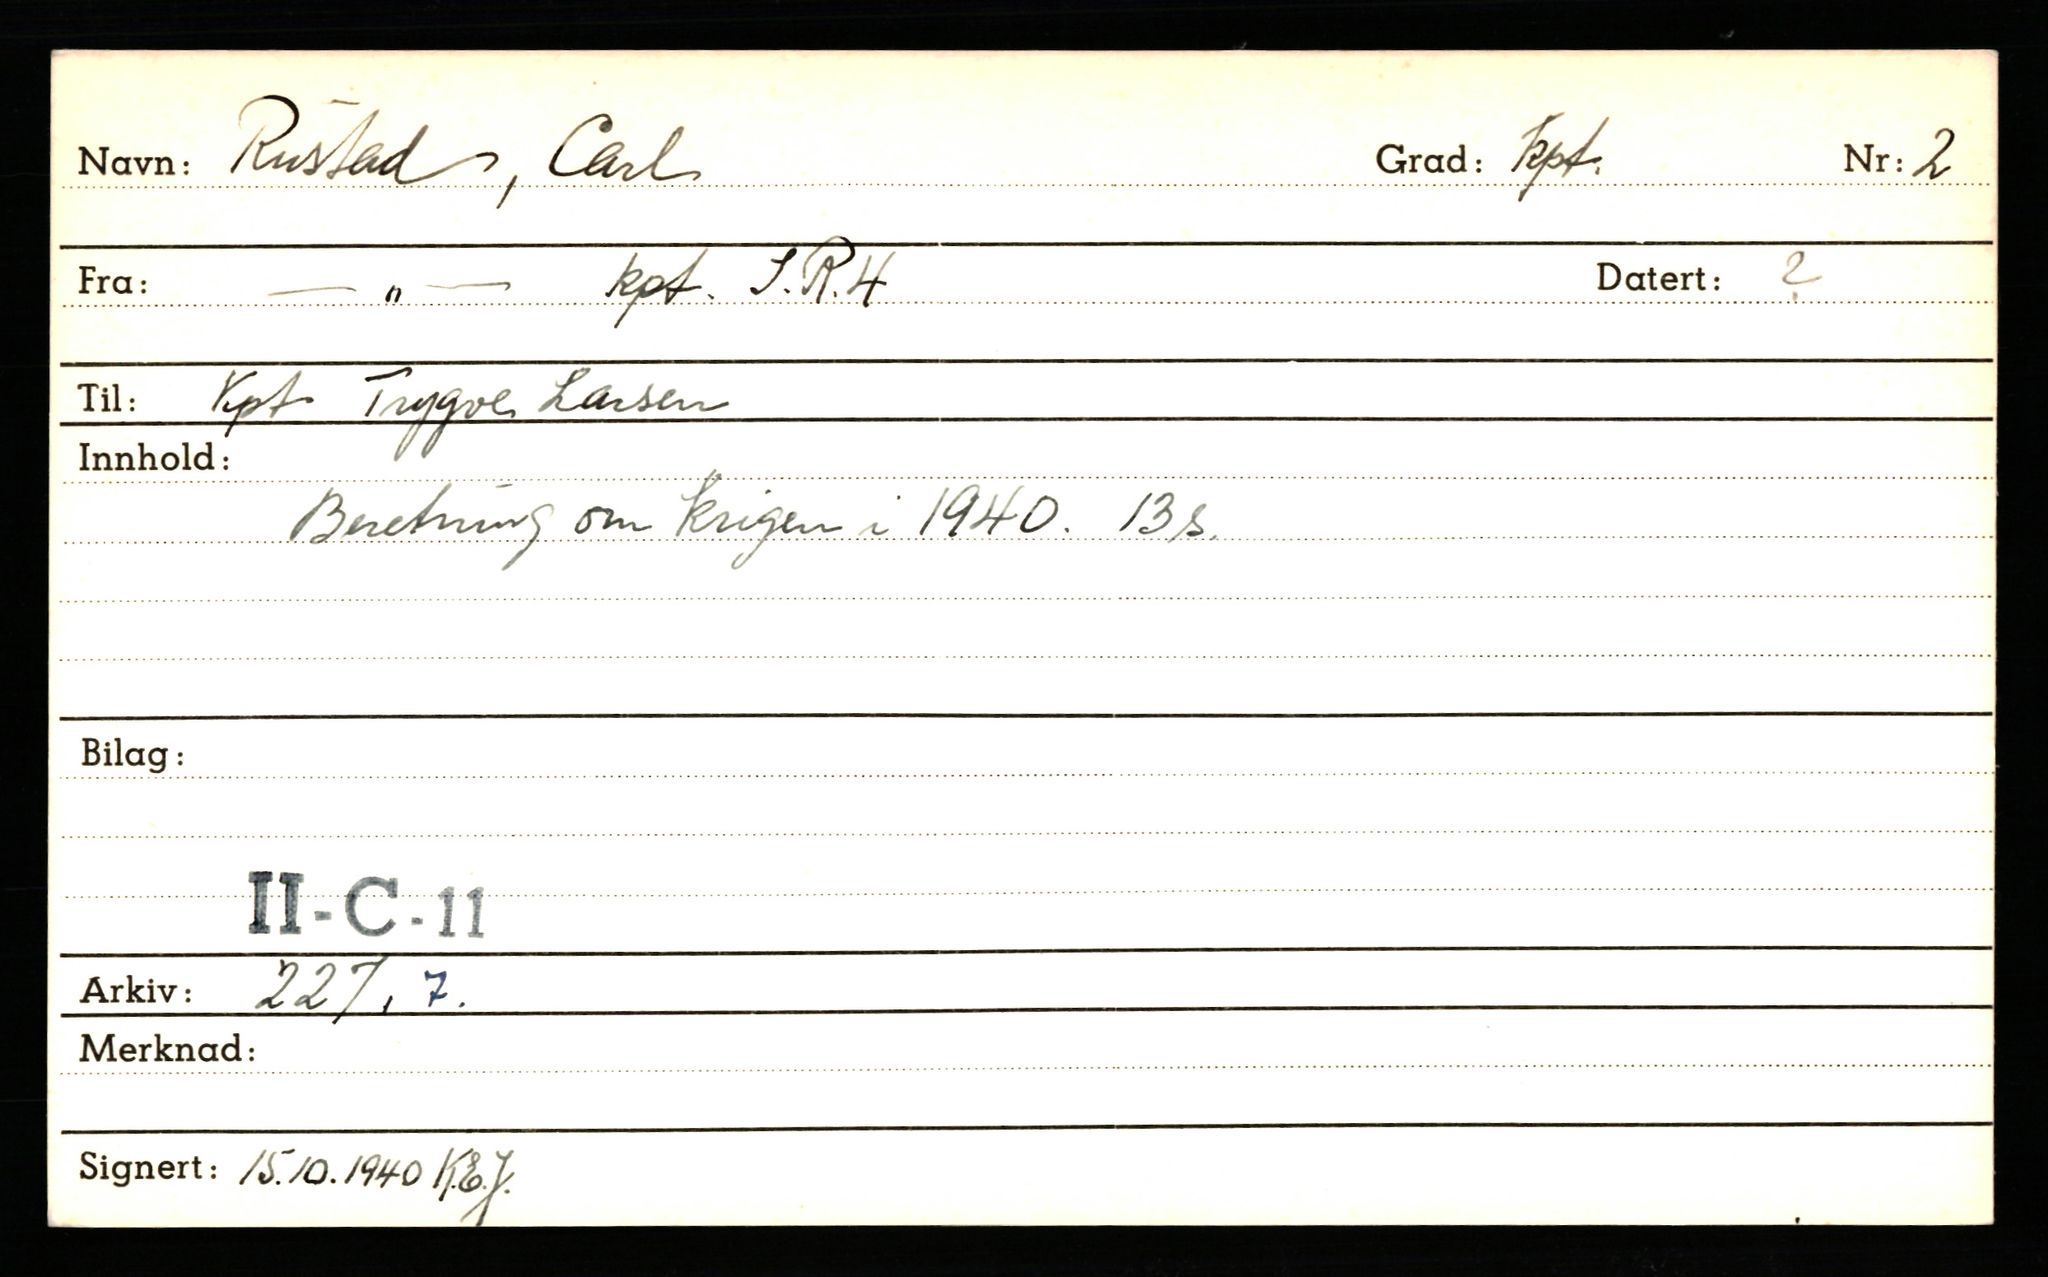 Navn: Rustad, Carl Grad: Kpt. Nr: 2
Fra: — " — kpt. I.R.4 Datert: ?
Til: Kpt Trygve Larsen
Innhold:
Beretning om krigen i 1940. 13 s.
Bilag:
II-C-11
Arkiv: 227, 7.
Merknad:
Signert: 15.10.1940 K.E.J.